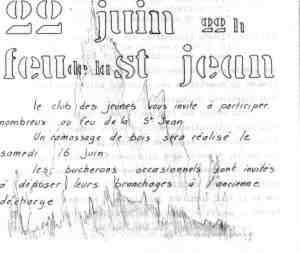 22 juin 22 h
feu de la st jean
le club des jeunes vous invite à participer
nombreux au feu de la St Jean
Un ramassage de bois sera réalisé le
samedi 16 juin
les bucherons occasionnels sont invités
à déposer leurs branchages à l'ancienne
décharge